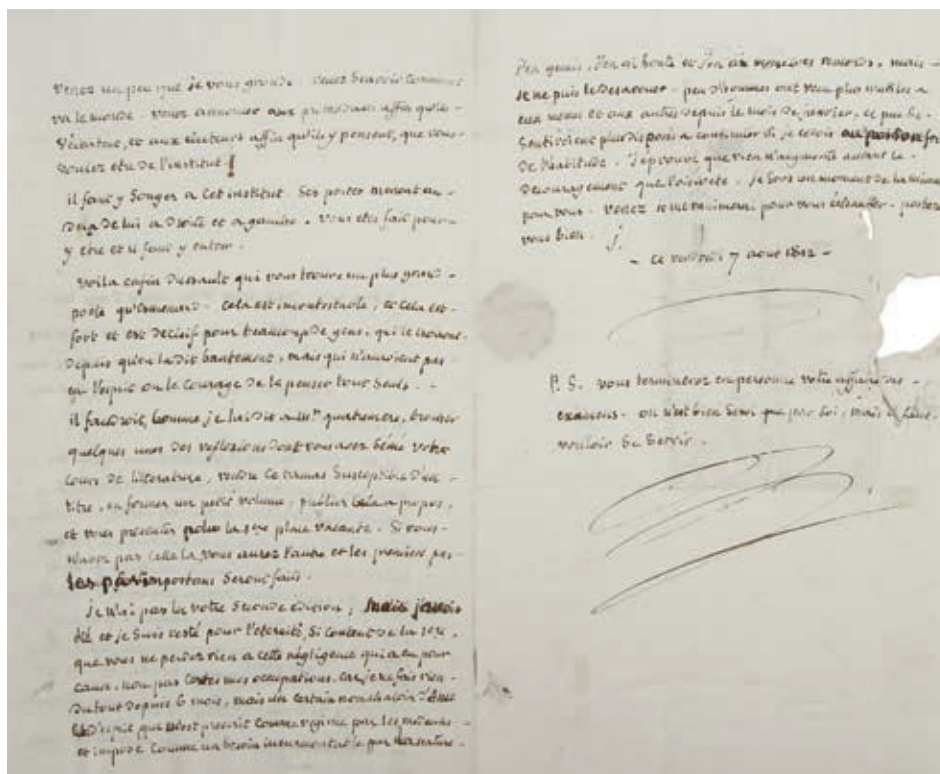 venez un peu que je vous gronde. venez scavoir comment
va le monde. venez annoncer aux pretendans affin qu'ils
s'écartent, et aux electeurs affin qu'ils y pensent, que vous
voulez etre de l'institut!
il faut y songer a cet institut. ses portes menent au
dela de lui a droite et a gauche. vous etes fait pour
y etre et il faut y entrer.
voila enfin Dussault qui vous trouve un plus grand
poete qu'. cela est incontestable, et cela est
fort et est decisif pour beaucoup de gens, qui le trouvent
depuis qu'on la dit hautement, mais qui n'auroient pas
eu l'esprit ou le courage de le penser tout seuls.
il faudroit, comme je l'ai dit a mr. quatremere,
quelques unes des reflexions dont vous avez semé votre
cours de litterature, rendre ce ramas susceptible d'un
titre, en former un petit volume, publier cela a propos,
et vous presenter pour la 1ere place vacante. Si vous
n'avez pas celle la, vous aurez l'autre et les premiers pas
les pas importans seront faits.
je n'ai pas lu votre seconde édition; mais j'avois
été et je suis resté pour l'eternité, si content de la 1ere,
que vous ne perdez rien a cette négligence qui a eu pour
cause, non pas certes mes occupations. car je ne fais rien
du tout depuis 6 mois, mais un certain nonchaloir d'ame
et d'esprit qui m'est prescrit comme regime par les médecins
et imposé comme un besoin insurmontable par la nature.
j'en gemis, j'en ai honte et j'en ai remords, mais
je ne puis le desavouer. peu d'hommes ont vecu plus inutiles a
eux memes et aux autres depuis le mois de janvier, et peu se
sentiroient plus disposés a continuer si je cedois au poids
de l'habitude. j'eprouve que rien n'augmente autant le
decouragement que l'oisiveté. je sors un moment de la mienne
pour vous. venez je me ranimerai pour vous échauffer. portez
vous bien. j.
- ce vendredi 7 aout 1812 -
P.S. vous terminerez en personne votre affaire des
examens. on n'est bien servi que par soi, mais il faut
vouloir se servir.